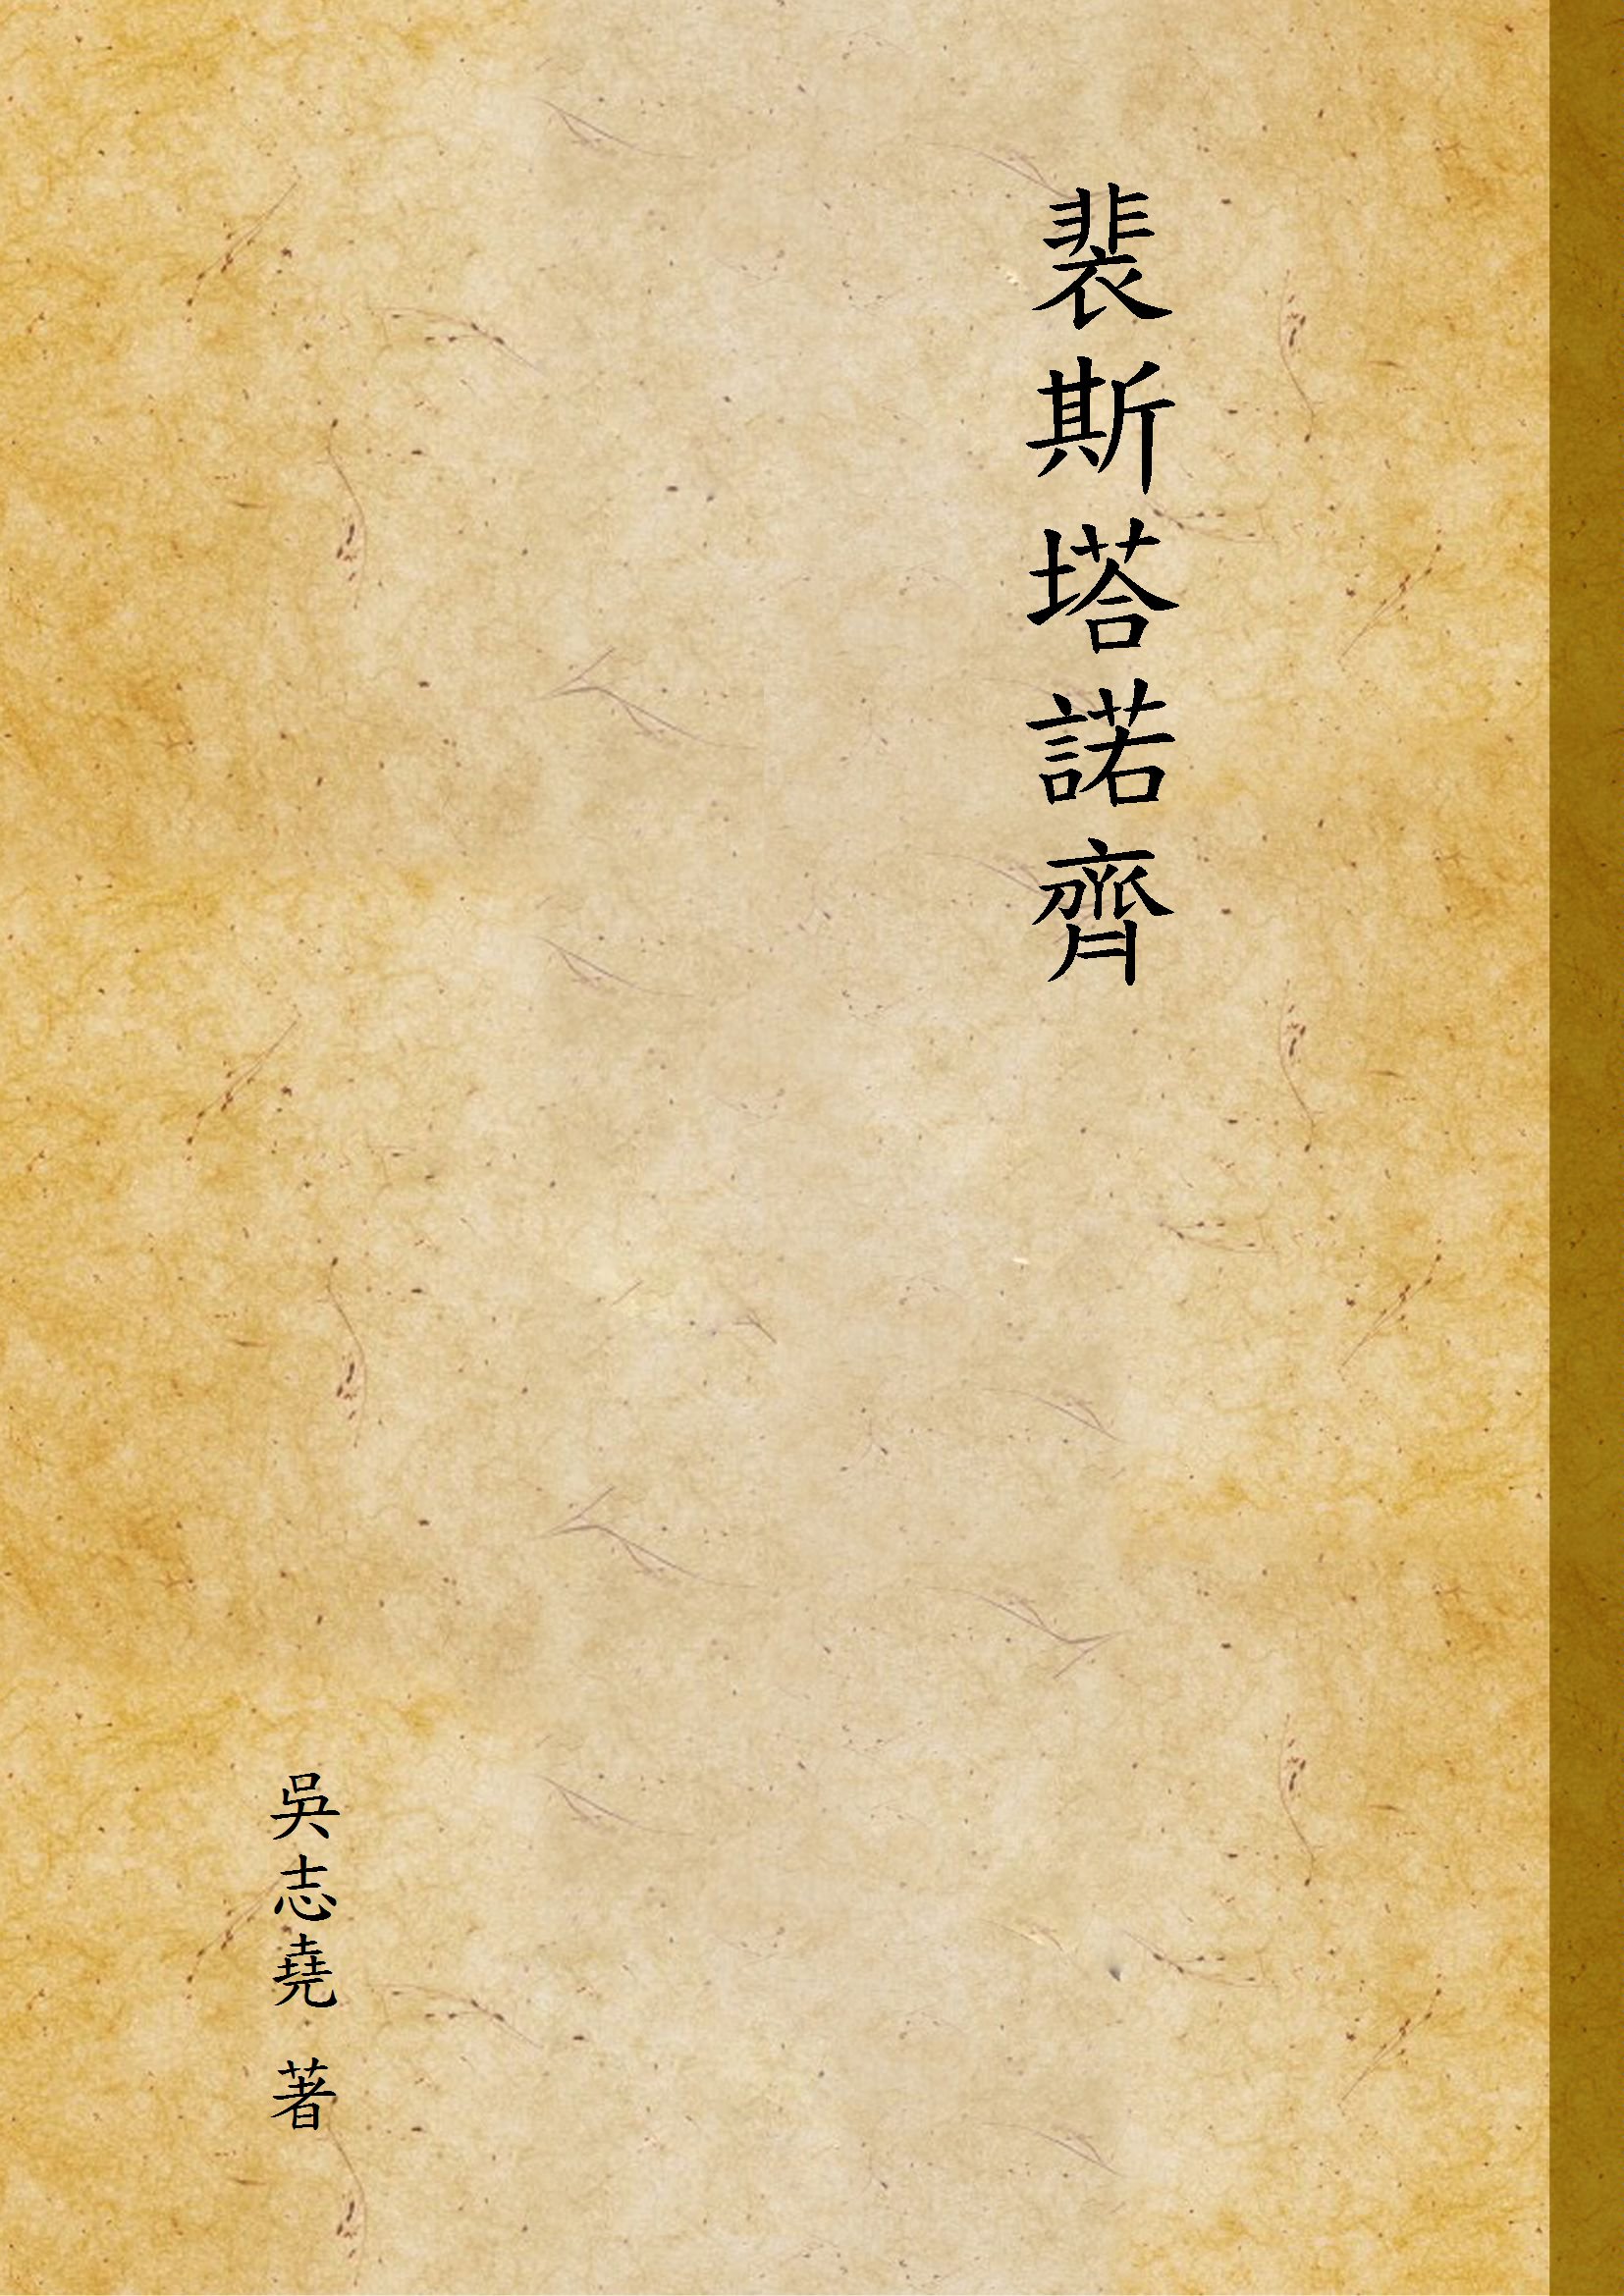 裴斯塔諾齊
吳志堯 著